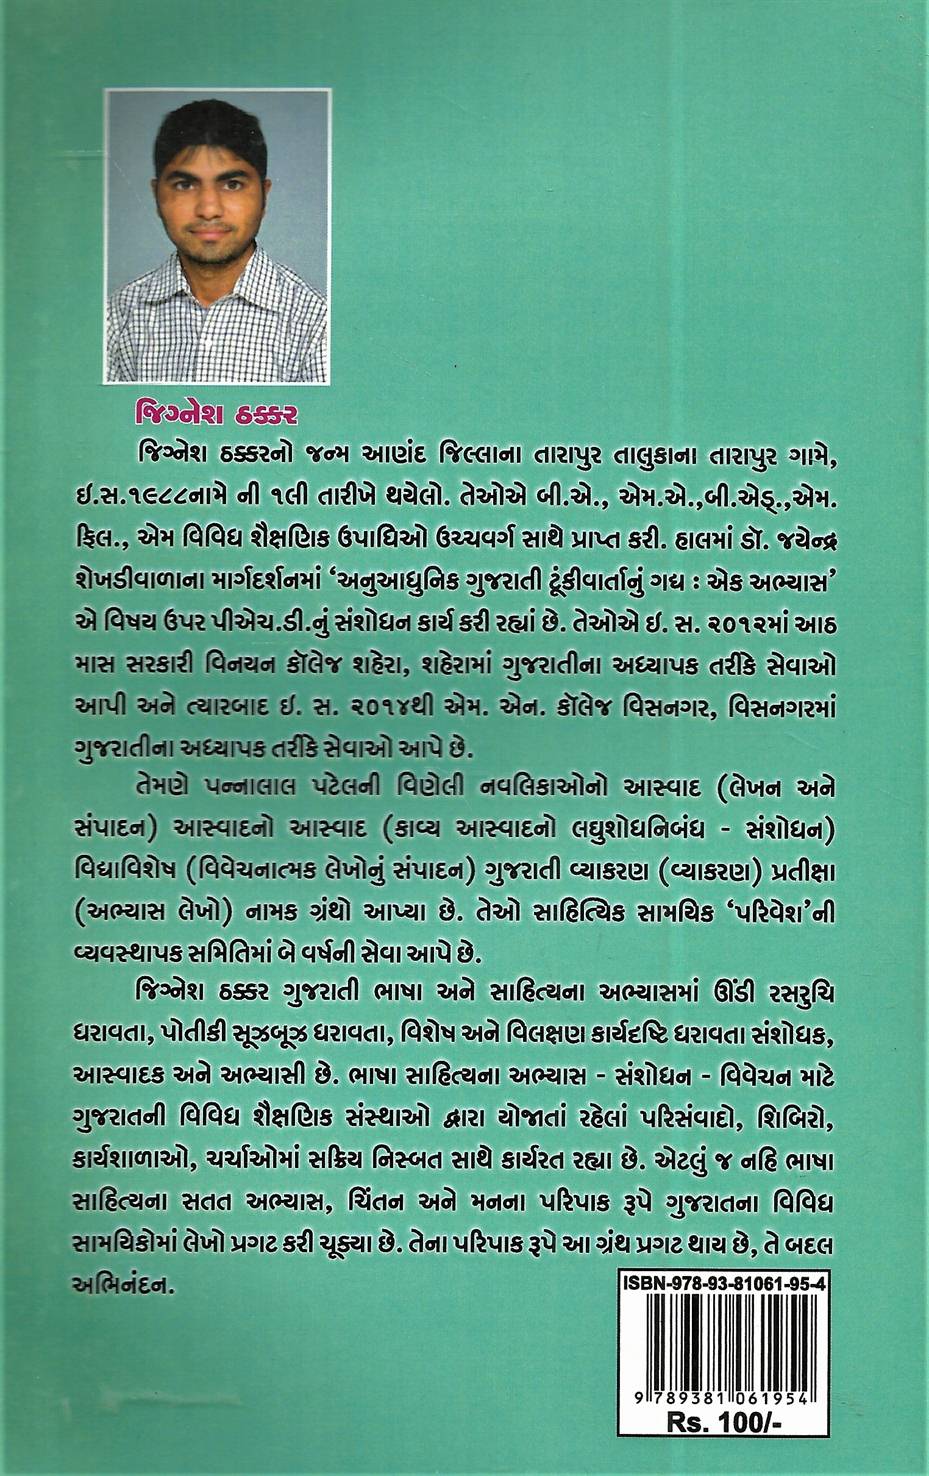 જિગ્નેશ ઠક્કર
જિગ્નેશ ઠક્કરનો જન્મ આણંદ જિલ્લાના તારાપુર તાલુકાના તારાપુર ગામે,
ઇ.સ.૧૯૮૮નામે ની ૧લી તારીખે થયેલો. તેઓએ બી.એ., એમ.એ.,બી.એડ્.,એમ.
ફિલ., એમ વિવિધ શૈક્ષણિક ઉપાધિઓ ઉચ્ચવર્ગ સાથે પ્રાપ્ત કરી. હાલમાં ડૉ. જયેન્દ્ર
શેખડીવાળાના માર્ગદર્શનમાં ‘અનુઆધુનિક ગુજરાતી ટૂંકીવાર્તાનું ગદ્ય : એક અભ્યાસ’
એ વિષય ઉપર પીએચ.ડી.નું સંશોધન કાર્ય કરી રહ્યાં છે. તેઓએ ઇ. સ. ૨૦૧૨માં આઠ
માસ સરકારી વિનયન કૉલેજ શહેરા, શહેરામાં ગુજરાતીના અધ્યાપક તરીકે સેવાઓ
આપી અને ત્યારબાદ ઇ. સ. ૨૦૧૪થી એમ. એન. કૉલેજ વિસનગર, વિસનગરમાં
ગુજરાતીના અધ્યાપક તરીકે સેવાઓ આપે છે.
તેમણે પન્નાલાલ પટેલની વિણેલી નવલિકાઓનો આસ્વાદ (લેખન અને
સંપાદન) આસ્વાદનો આસ્વાદ (કાવ્ય આસ્વાદનો લઘુશોધનિબંધ - સંશોધન)
વિદ્યાવિશેષ (વિવેચનાત્મક લેખોનું સંપાદન) ગુજરાતી વ્યાકરણ (વ્યાકરણ) પ્રતીક્ષા
(અભ્યાસ લેખો) નામક ગ્રંથો આપ્યા છે. તેઓ સાહિત્યિક સામયિક ‘પરિવેશ’ની
વ્યવસ્થાપક સમિતિમાં બે વર્ષની સેવા આપે છે.
જિગ્નેશ ઠક્કર ગુજરાતી ભાષા અને સાહિત્યના અભ્યાસમાં ઊંડી રસરુચિ
ધરાવતા, પોતીકી સૂઝબૂઝ ધરાવતા, વિશેષ અને વિલક્ષણ કાર્યદૃષ્ટિ ધરાવતા સંશોધક,
આસ્વાદક અને અભ્યાસી છે. ભાષા સાહિત્યના અભ્યાસ - સંશોધન - વિવેચન માટે
ગુજરાતની વિવિધ શૈક્ષણિક સંસ્થાઓ દ્વારા યોજાતાં રહેલાં પરિસંવાદો, શિબિરો,
કાર્યશાળાઓ, ચર્ચાઓમાં સક્રિય નિસ્બત સાથે કાર્યરત રહ્યા છે. એટલું જ નહિ ભાષા
સાહિત્યના સતત અભ્યાસ, ચિંતન અને મનના પરિપાક રૂપે ગુજરાતના વિવિધ
સામયિકોમાં લેખો પ્રગટ કરી ચૂક્યા છે. તેના પરિપાક રૂપે આ ગ્રંથ પ્રગટ થાય છે, તે બદલ
અભિનંદન.
ISBN-978-93-81061-95-4
9 789381 061954
Rs. 100/-